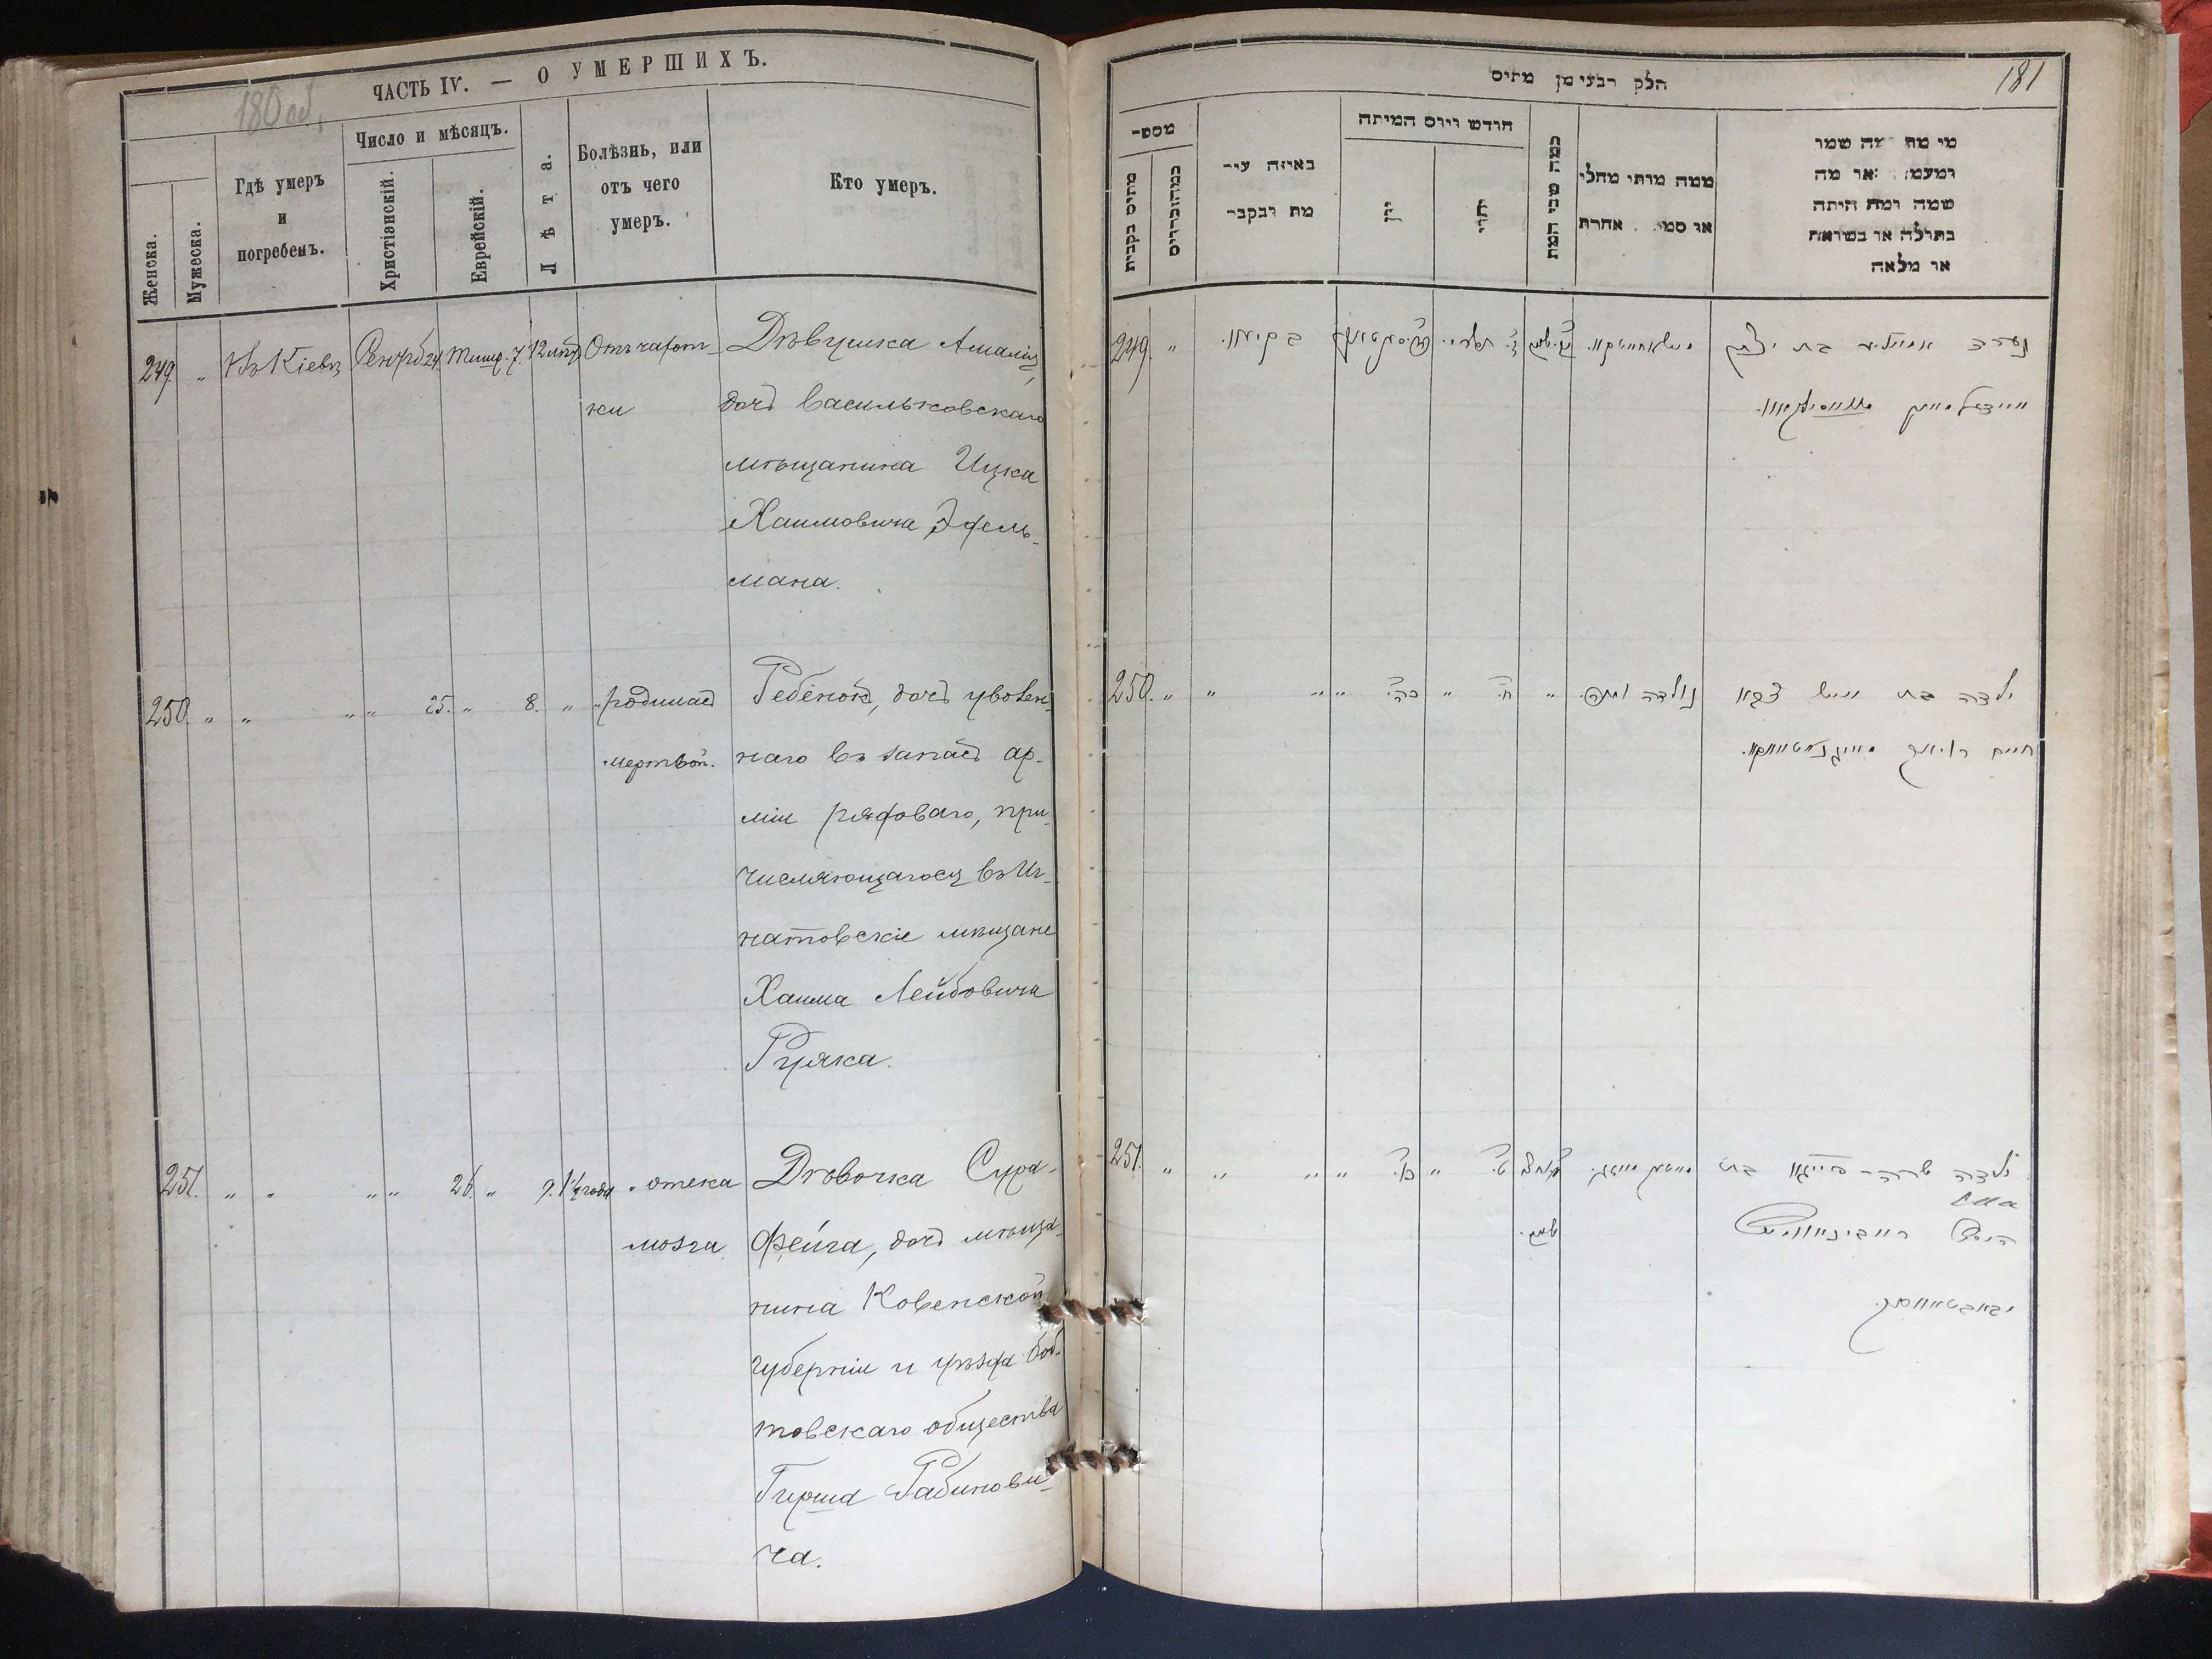 ЧАСТЬ IV. — О УМЕРШИХЪ.
180 об.
Женска.
Мужеска.
Гдѣ умеръ
и
погребенъ.
Число и мѣсяцъ.
Христіянскій.
Еврейскій.
Лѣта.
Болѣзнь, или
отъ чего
умеръ.
Кто умеръ.
249. " Въ Кіевѣ Сентяб. 24. Тишр. 7. 12 лѣтъ Отъ чахот-
ки
Дѣвушка Амалія,
дочь Васильковскаго
мѣщанина Ицка
Хаимовича Эдель-
мана.
250. " " " " 25. " 8. " " родилась
мертвой.
Ребенокъ, дочь уволен-
наго въ запасъ ар-
міи рядоваго, при-
числяющагося въ Иг-
натовскіе мѣщане
Хаима Лейбовича
Руяка.
251. " " " " 26. " 9. 1½ года " отека
мозга.
Дѣвочка Сура-
Фейга, дочь мѣща-
нина Ковенской
губерніи и уѣзда Боб-
товскаго общества
Гирша Рабинови-
ча.
181
חלק רבעי מן מתים
מספר
מתים בקבית
חודש ויום המיתה
באיזה עיר
מת ונקבר
כמה שני המת
ממה מותו מחלי
או סמי אחרת
מי מת מה שמו
שמה ומה היתה
בתולה או בשואת
או מלאה
249. " בקיעוו.
נערה אמאליע בת יצחק
250. " " " " כה. " ח. " נולדה מתה.
ילדה בת
חיים
251. " " " " כו. " ט.
ילדה שרה-פייגא בת
הירש ראבינאוויטש